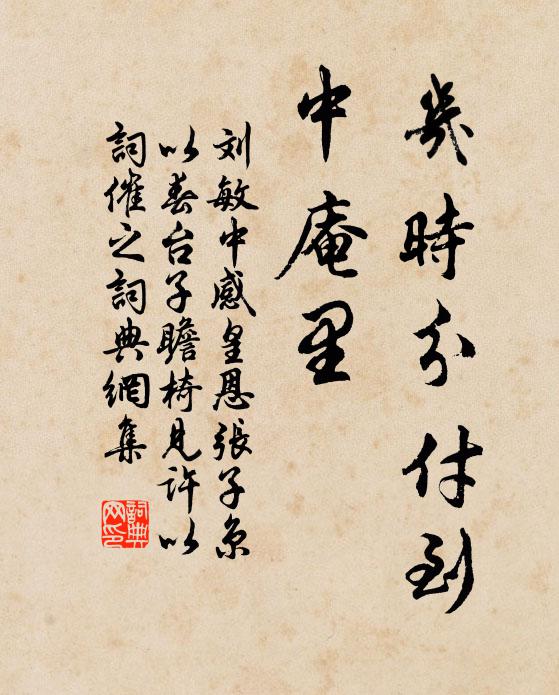 幾時分付到
中庵里
刘敏中感皇恩張子京
以春台子瞻椅見許以
詞催之詞典網集
詞典网印